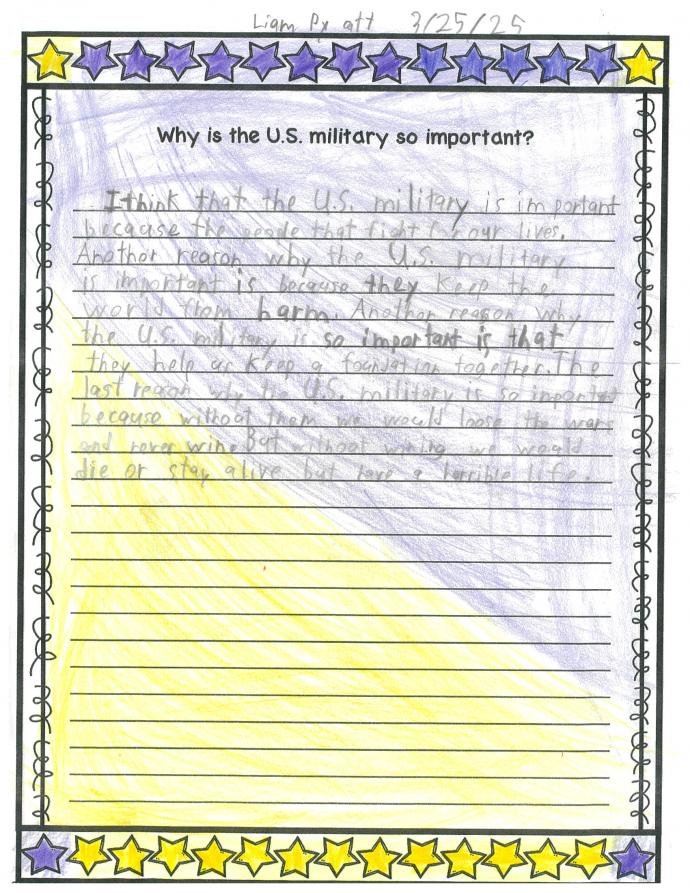 Liam Pyatt 3/25/25
Why is the U.S. military so important?
I think that the U.S. military is important
because the people that fight for our lives.
Anothor reason why the U.S. military
is important is because they keep the
world from harm. Anothor reason why
the U.S. military is so important is that
they help us keep a foundation together. The
last reason why the U.S. military is so important
because without them we would loose the wars
and never wine. But without wining we would
die or stay alive but have a terrible life.